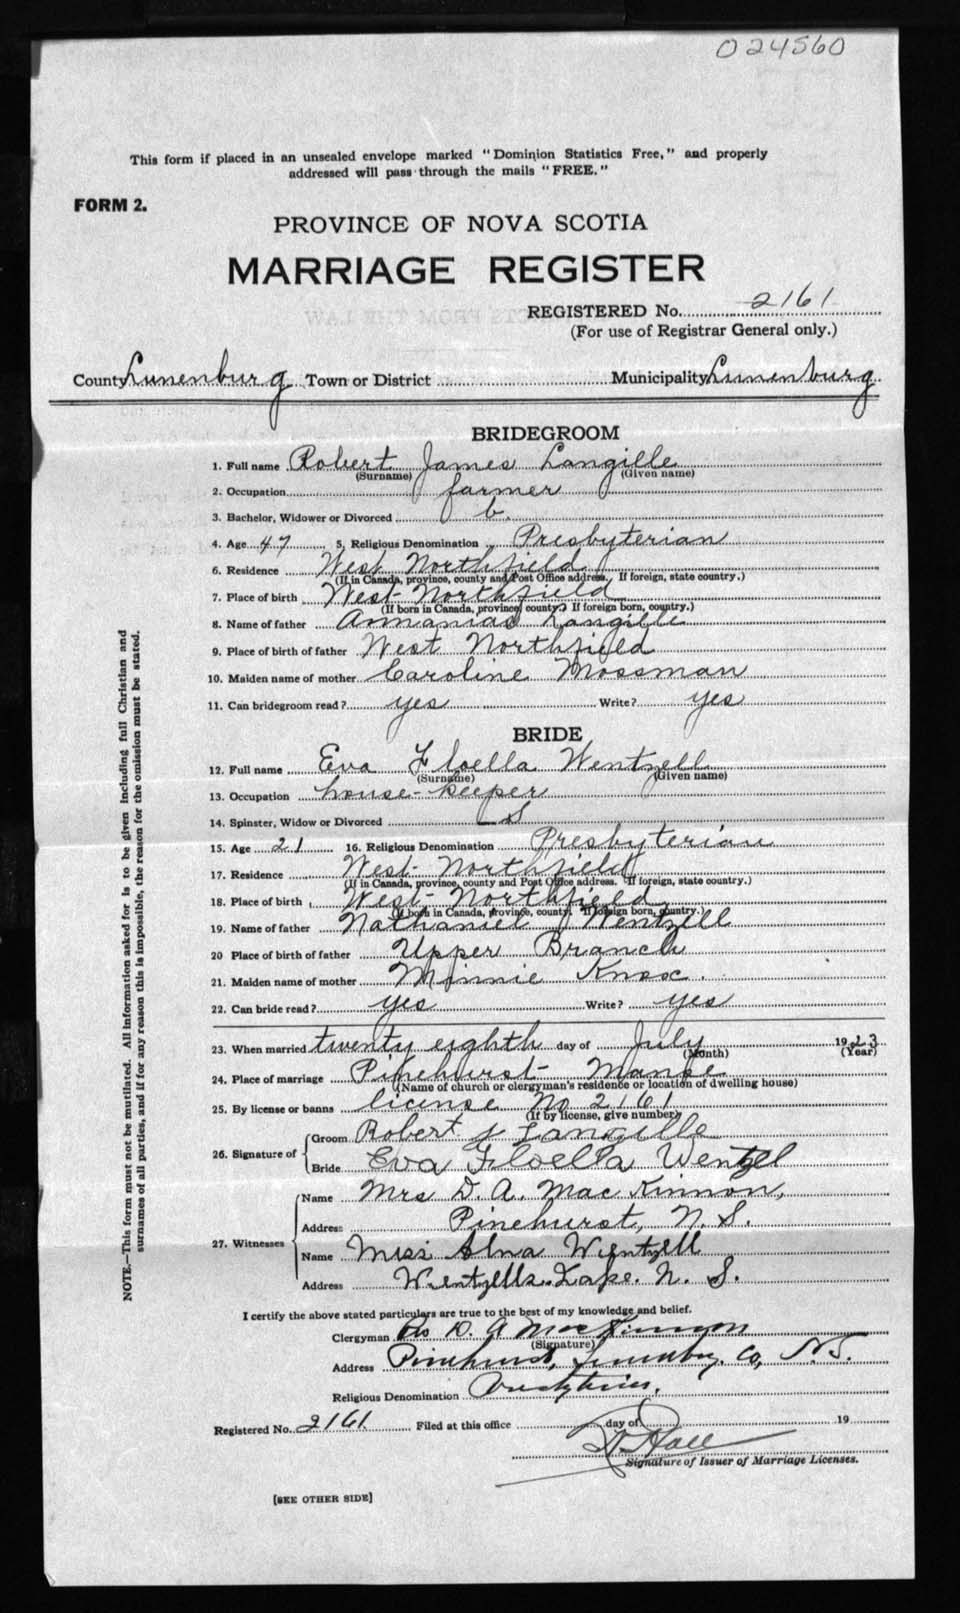 024560
This form if placed in an unsealed envelope marked "Dominion Statistics Free," and properly
addressed will pass through the mails "FREE."
FORM 2.
PROVINCE OF NOVA SCOTIA
MARRIAGE REGISTER
REGISTERED No. 2161
(For use of Registrar General only.)
County Lunenburg Town or District Municipality Lunenburg
BRIDEGROOM
1. Full name Robert James Langille
(Surname) (Given name)
2. Occupation farmer
3. Bachelor, Widower or Divorced b.
4. Age 47 5. Religious Denomination Presbyterian
6. Residence West Northfield
(If in Canada, province, county and Post Office address. If foreign, state country.)
7. Place of birth West Northfield
(If born in Canada, province, county? If foreign born, country.)
8. Name of father Annanias Langille
9. Place of birth of father West Northfield
10. Maiden name of mother Caroline Mossman
11. Can bridegroom read? yes Write? yes
BRIDE
12. Full name Eva Floella Wentzell
(Surname) (Given name)
13. Occupation house-keeper
14. Spinster, Widow or Divorced S
15. Age 21 16. Religious Denomination Presbyterian
17. Residence West Northfield
(If in Canada, province, county and Post Office address. If foreign, state country.)
18. Place of birth West Northfield
(If born in Canada, province, county. If foreign born, country.)
19. Name of father Nathaniel Wentzell
20 Place of birth of father Upper Branch
21. Maiden name of mother Minnie Knox.
22. Can bride read? yes Write? yes
23. When married twenty eighth day of July 1923
(Month) (Year)
24. Place of marriage Pinehurst Manse
(Name of church or clergyman's residence or location of dwelling house)
25. By license or banns license No 2161
(If by license, give number)
26. Signature of Groom Robert J Langille
Bride Eva Floella Wentzel
27. Witnesses Name Mrs D. A. Mac Kinnon,
Address Pinehurst, N. S.
Name Miss Alna Wentzell
Address Wentzells Lake. N. S.
I certify the above stated particulars are true to the best of my knowledge and belief.
Clergyman D. A MacKinnon
(Signature)
Address Pinehurst, Lunenburg. Co, N.S.
Religious Denomination
Registered No. 2161 Filed at this office day of 19
Signature of Issuer of Marriage Licenses.
[SEE OTHER SIDE]
NOTE.—This form must not be mutilated. All information asked for is to be given including full Christian and
surnames of all parties, and if for any reason this is impossible, the reason for the omission must be stated.